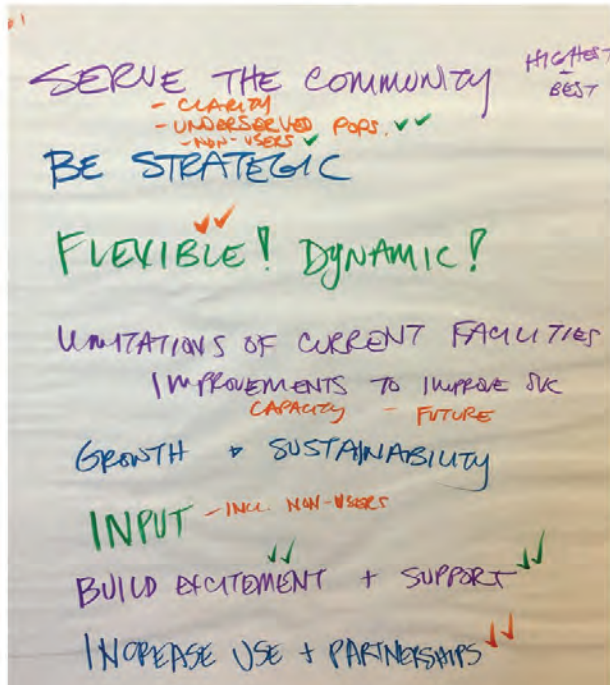 1
SERVE THE COMMUNITY
HIGHEST
BEST
- CLARITY
- UNDERSERVED POPS. ✓✓
- NON-USERS ✓
BE STRATEGIC
✓✓
FLEXIBLE! DYNAMIC!
LIMITATIONS OF CURRENT FACILITIES
IMPROVEMENTS TO IMPROVE SVC
CAPACITY - FUTURE
GROWTH + SUSTAINABILITY
INPUT - INCL. NON-USERS
✓✓
BUILD EXCITEMENT + SUPPORT ✓✓
INCREASE USE + PARTNERSHIPS ✓✓